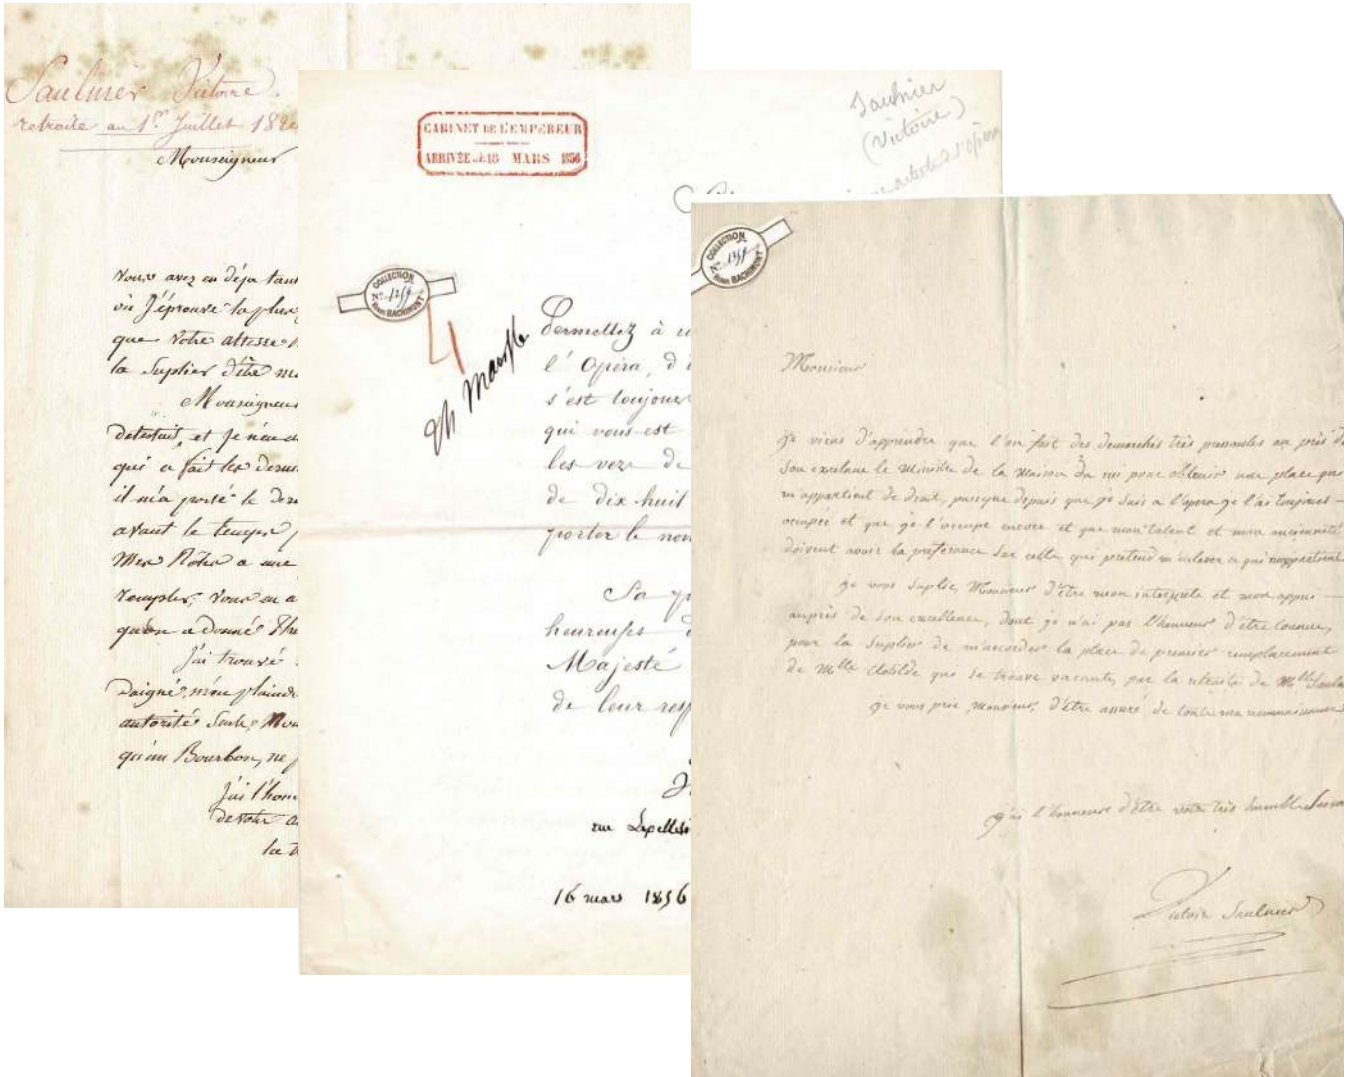 Saulnier Victoire.
retraite au 1er Juillet 182
Monseigneur
Vous avez eu déja tant
où J'éprouve la plus
que Votre altesse
la Suplier d'être
Monseigneur
détestait, et je n'eu
qui a fait les
il m'a porté le
avant le temps
Mes Rôles a une
remplir, vous en a
qu'on a donné
J'ai trouvé
Daigné m'en plaindre
autorité Seule,
qu'un Bourbon, ne
J'ai l'hon
de votre a
la t
CABINET DE L'EMPEREUR
ARRIVÉE LE 18 MARS 1856
Saulnier
(Victoire)
artiste de l'opéra
COLLECTION
No 1259
BACHIMONT
4
Permettez à
l'Opéra, d'
s'est toujours
qui vous est
les vœx de
de dix huit
porter le nom
Sa
heureuses d
Majesté
de leur resp
rue Lepelleti
16 mars 1856
COLLECTION
No 1259
BACHIMONT
Monsieur
je viens d'apprendre que l'on fait des demarches très pressantes au près de
Son excelence le Ministre de la Maison du roi pour obtenir une place qui
m'appartient de droit, puisque depuis que je suis a l'opera je l'ai toujours
ocupée et que je l'occupe encore et que mon talent et mon ancienneté
doivent avoir la préférence sur celle qui pretend m'enlever ce qui m'appartient
je vous Suplie, Monsieur d'être mon interprete et mon appui
auprès de Son excellence, dont je n'ai pas l'honneur d'être connue,
pour la Suplier de m'accorder la place de premier remplacement
de Mlle Clotilde qui se trouve vacante, par la retraite de Mlle Saulni
je vous prie, Monsieur, d'être assuré de toute ma reconnaissance
j'ai l'honneur d'être votre très humble Serva
Victoire Saulnier